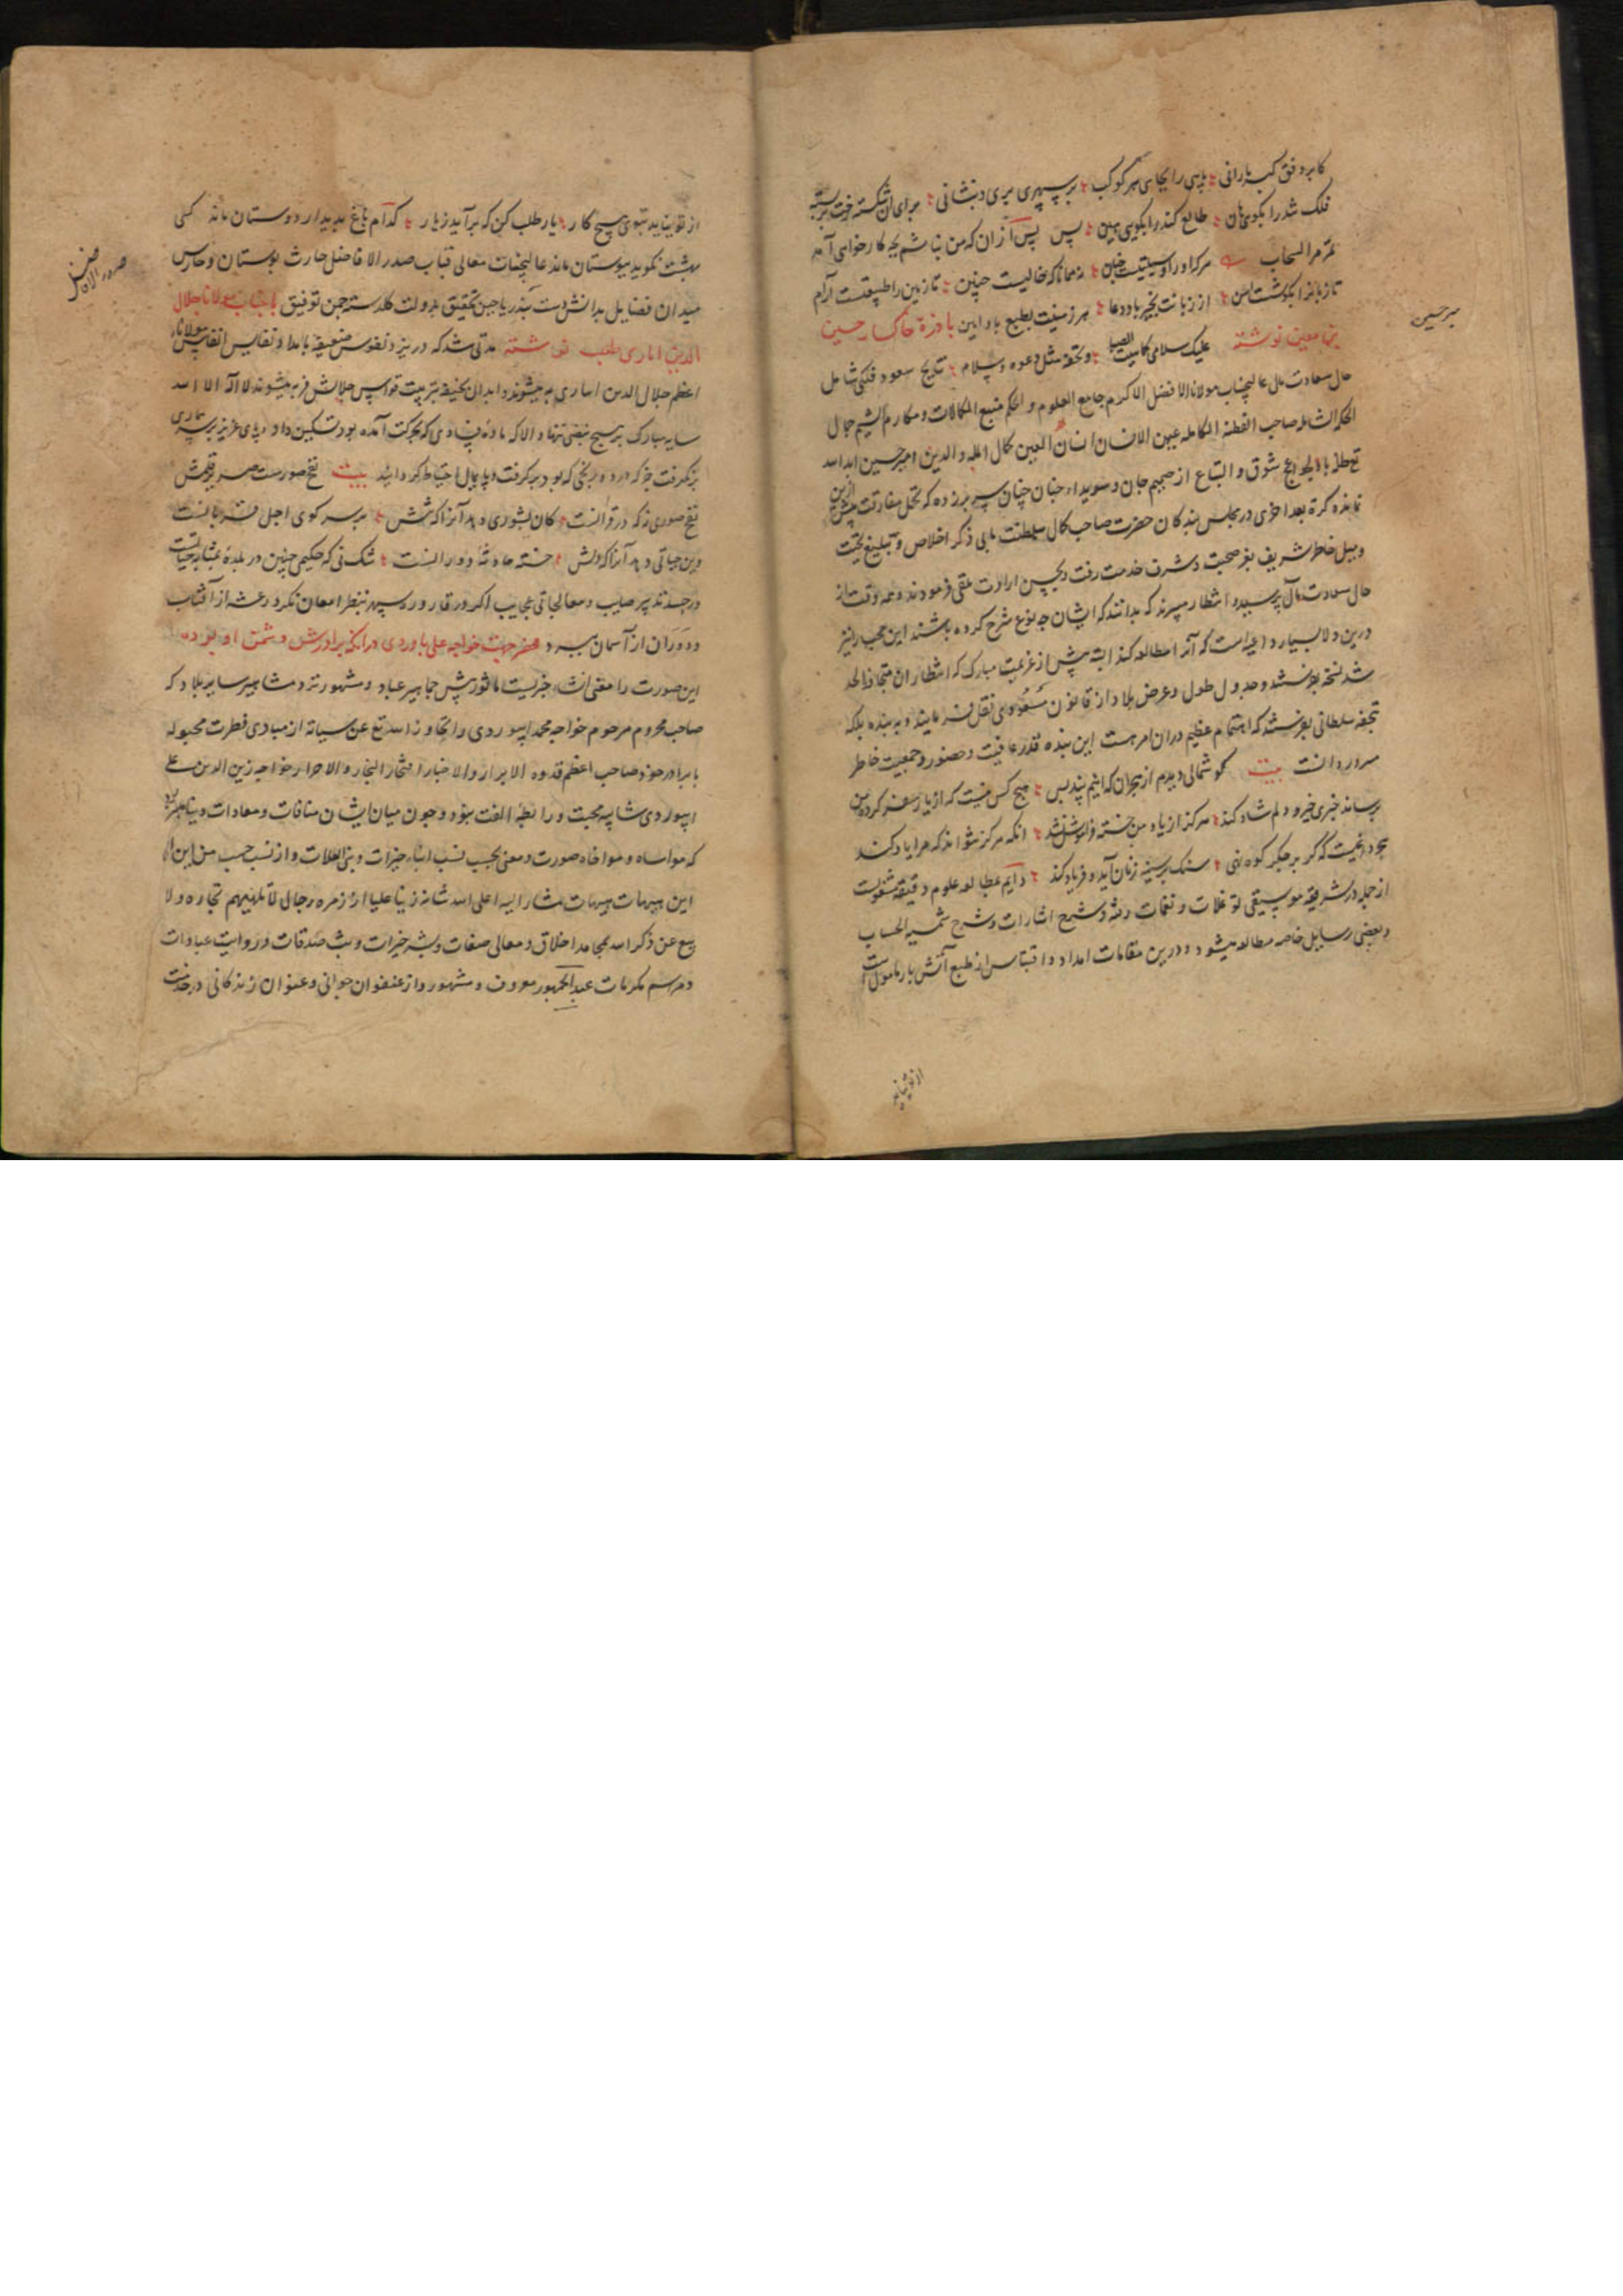 کابر وفق کبه بارانی بچای هر کوکب بر سپهری مری و نشانی برای آن شکسته
فلک شد را بکوی هان طالع کند را بکوی هین پس پس از ان که من نباشم بچه کار خواهی آمد
تمر مر السحاب هرکرا در او حالیست چنین تا زمین را طبیعتست آرام
تا زمانرا بکوشت از زبانت بخیر باد دعا هر زمینت بطبع باد این با وزة خاکسار حسین
بن معین نوشته علیک سلامی و تحفة مثل دعوه و سلام نتایج سعود فلکی شامل
میر حسین
حال سعادت مآل عالیجناب مولانا الافضل الاکرم جامع العلوم و الحکم منبع الکمالات و مکارم الشیم جمال
الحکم صاحب الفطنة الکامله عین الانسان انسان العین کمال المله و الدین امیر حسین ابداسه
شوق و التیاع از صمیم جان و سویداء جنان چنان سر برزده که تحمل مفارقت پیش ازین
نمانده کرة بعد اخری در مجلس بندکان حضرت صاحب کمال سلطنت مآبی ذکر اخلاص و تبلیغ تحیت
و میل خاطر شریف بعز صحبت و شرف خدمت رفت و بحسن ارادت تلقی فرمودند و همه وقت از
حال سعادت مآل پرسیده و انتظار میبرند که بدانند که ایشان چه نوع شرح کرده باشند این محب را نیز
درین ولا بسیار داعیه است که آنرا مطالعه کند البته پیش از عزیمت مبارک که انتظار ان متجاوز الحد
شد نسخه بفرستند و جدول طول و عرض بلاد از قانون مسعودی نقل فرمایند و به بنده بلکه
تحفه سلطانی بفرستند که اهتمام عظیم دران امر هست این بنده قدر عافیت و حضور و جمعیت خاطر
سرور دانست بیت کوشمالی دیدم از هجران که اینم پند بس هیچ کس نیست که از یار سفر کرده من
برساند خبری خیر و دلم شاد کند هرکز از یاد من خسته فراموش نشد انکه هرکز نتواند که مرا یاد کند
بر جکر کوه نهی سنک بر سینه زنان آید و فریاد کند دایم بمطالعه علوم دقیقه مشغولست
از جمله در شریفه موسیقی و نغمات و شرح اشارات و شرح شمسیه الحساب
و بعضی رسایل خاصه مطالعه میشود و درین مقامات امداد و اقتباس از طبع آتش بار مامول است
از تو نیاید
از تو نیاید بتوی هیچ کار یار طلب کن که برآید ز یار کدام باغ بدیدار دوستان ماند کسی
بهشت نکوید ببوستان ماند عالیجناب معالی قباب صدر الافاضل حارث بوستان و حارس
صدر الافاضل
میدان فضایل بدانش دست بند ریاحین تحقیق بدولت کلدسته چمن توفیق با جناب مولانا جلال
الدین اماری طبیب نوشته مدتی شد که درین و نفوس ضعیفه بامداد نفایس انفاس مولانا
اعظم جلال الدین اماری به میشوند و ابدان نحیفه بتربیت قوانین علاجش فربه میشوند لا اله الا الله
سایه مبارک بر هیچ نبض ننهاد الا که ماده فسادی که بحرکت آمده بود تسکین داد و پای عزیز بر سر بیماری
نکرفت جز که درد و رنجی که بود برکرفت و پایمال احتیاط کردانید بیت نفخ صورست صریر قلمش
نفخ صوری نه که در قرآنست کان نشوری دهد آنرا که تنش بر سر کوی اجل قربانست
وین حیاتی دهد آنرا که دلش خسته حادثه دورانست شک نی که حکیمی چنین در بلده بمثابه حیاتست
در جسد تدبیر صایب و معالجاتی عجایب اکر در قاروره سپهر بنظر امعان نکرد رعشه از آفتاب
و دوران از آسمان ببرد محضر جهت خواجه علی باوردی در انکه برادرش دشمن او بوده
این صورت را معنی خبریست ماثور پیش جماهیر عباد و مشهور نزد مشاهیر سایر بلاد که
صاحب محروم مرحوم خواجه محمد ابیوردی را تجاوز اسه تع عن سیاته از مبادی فطرت مجبوله
با برادر خود صاحب اعظم قدوه الابرار والاخیار افتخار التجار والاحرار خواجه زین الدین علی
ابیوردی شایبه محبت و رابطه الفت نبود و چون میان ایشان منافات و معادات
که مواساه و مواخاه صورت و معنی بحسب نسب ابناء خیرات و بنی العلات و از نسب حسب من این الی
این هیهات هیهات مشار الیه اعلی اسه شانه زینا علیا از زمره رجال لا تلهیهم تجاره ولا
بیع عن ذکر اسه بمحامد اخلاق و معالی صفات و نشر خیرات و بث صدقات و روایت عبادات
و مراسم مکرمات عند الجمهور معروف و مشهور و از عنفوان جوانی و عنوان زندکانی در خدمت